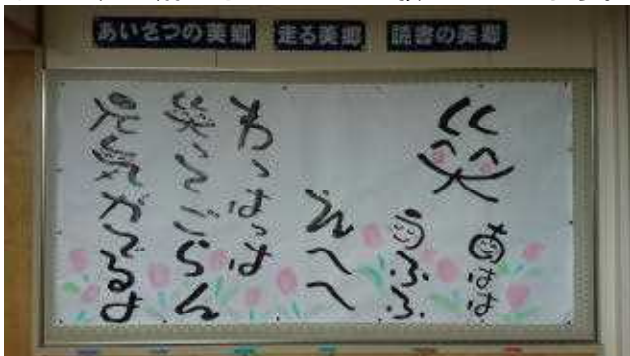 あいさつの美郷
走る美郷
読書の美郷
笑
あはは
うふふ
えへへ
わっはっは
笑ってごらん
元気がでるよ